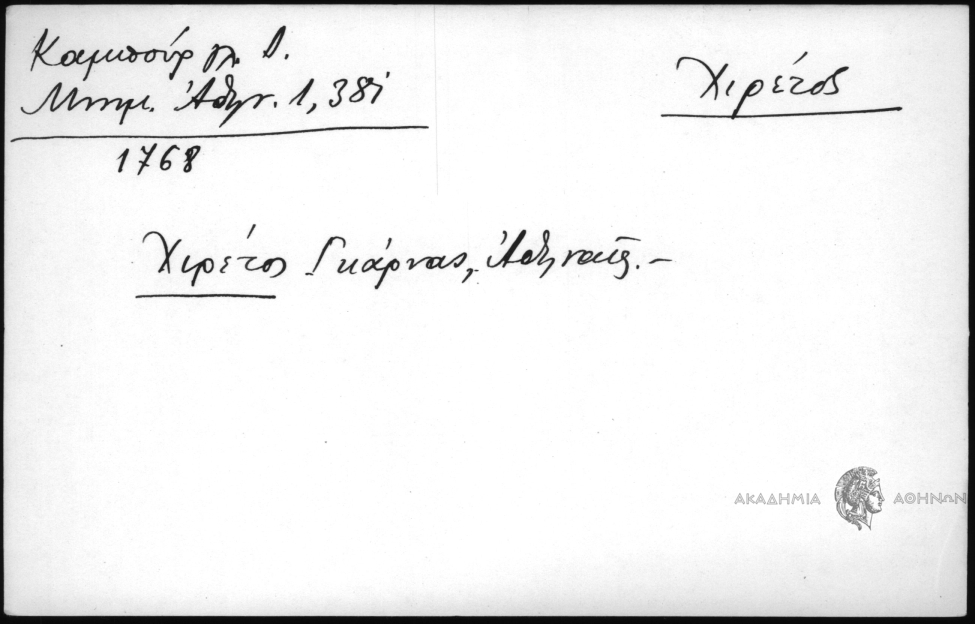 Καμπούρ γλ. Δ.
Μνημ. Ἀθην. 1, 381
Χιρέτος
1768
Χιρέτος Γκάρνας, Ἀθηναῖς.–
ΑΚΑΔΗΜΙΑ ΑΘΗΝΩΝ